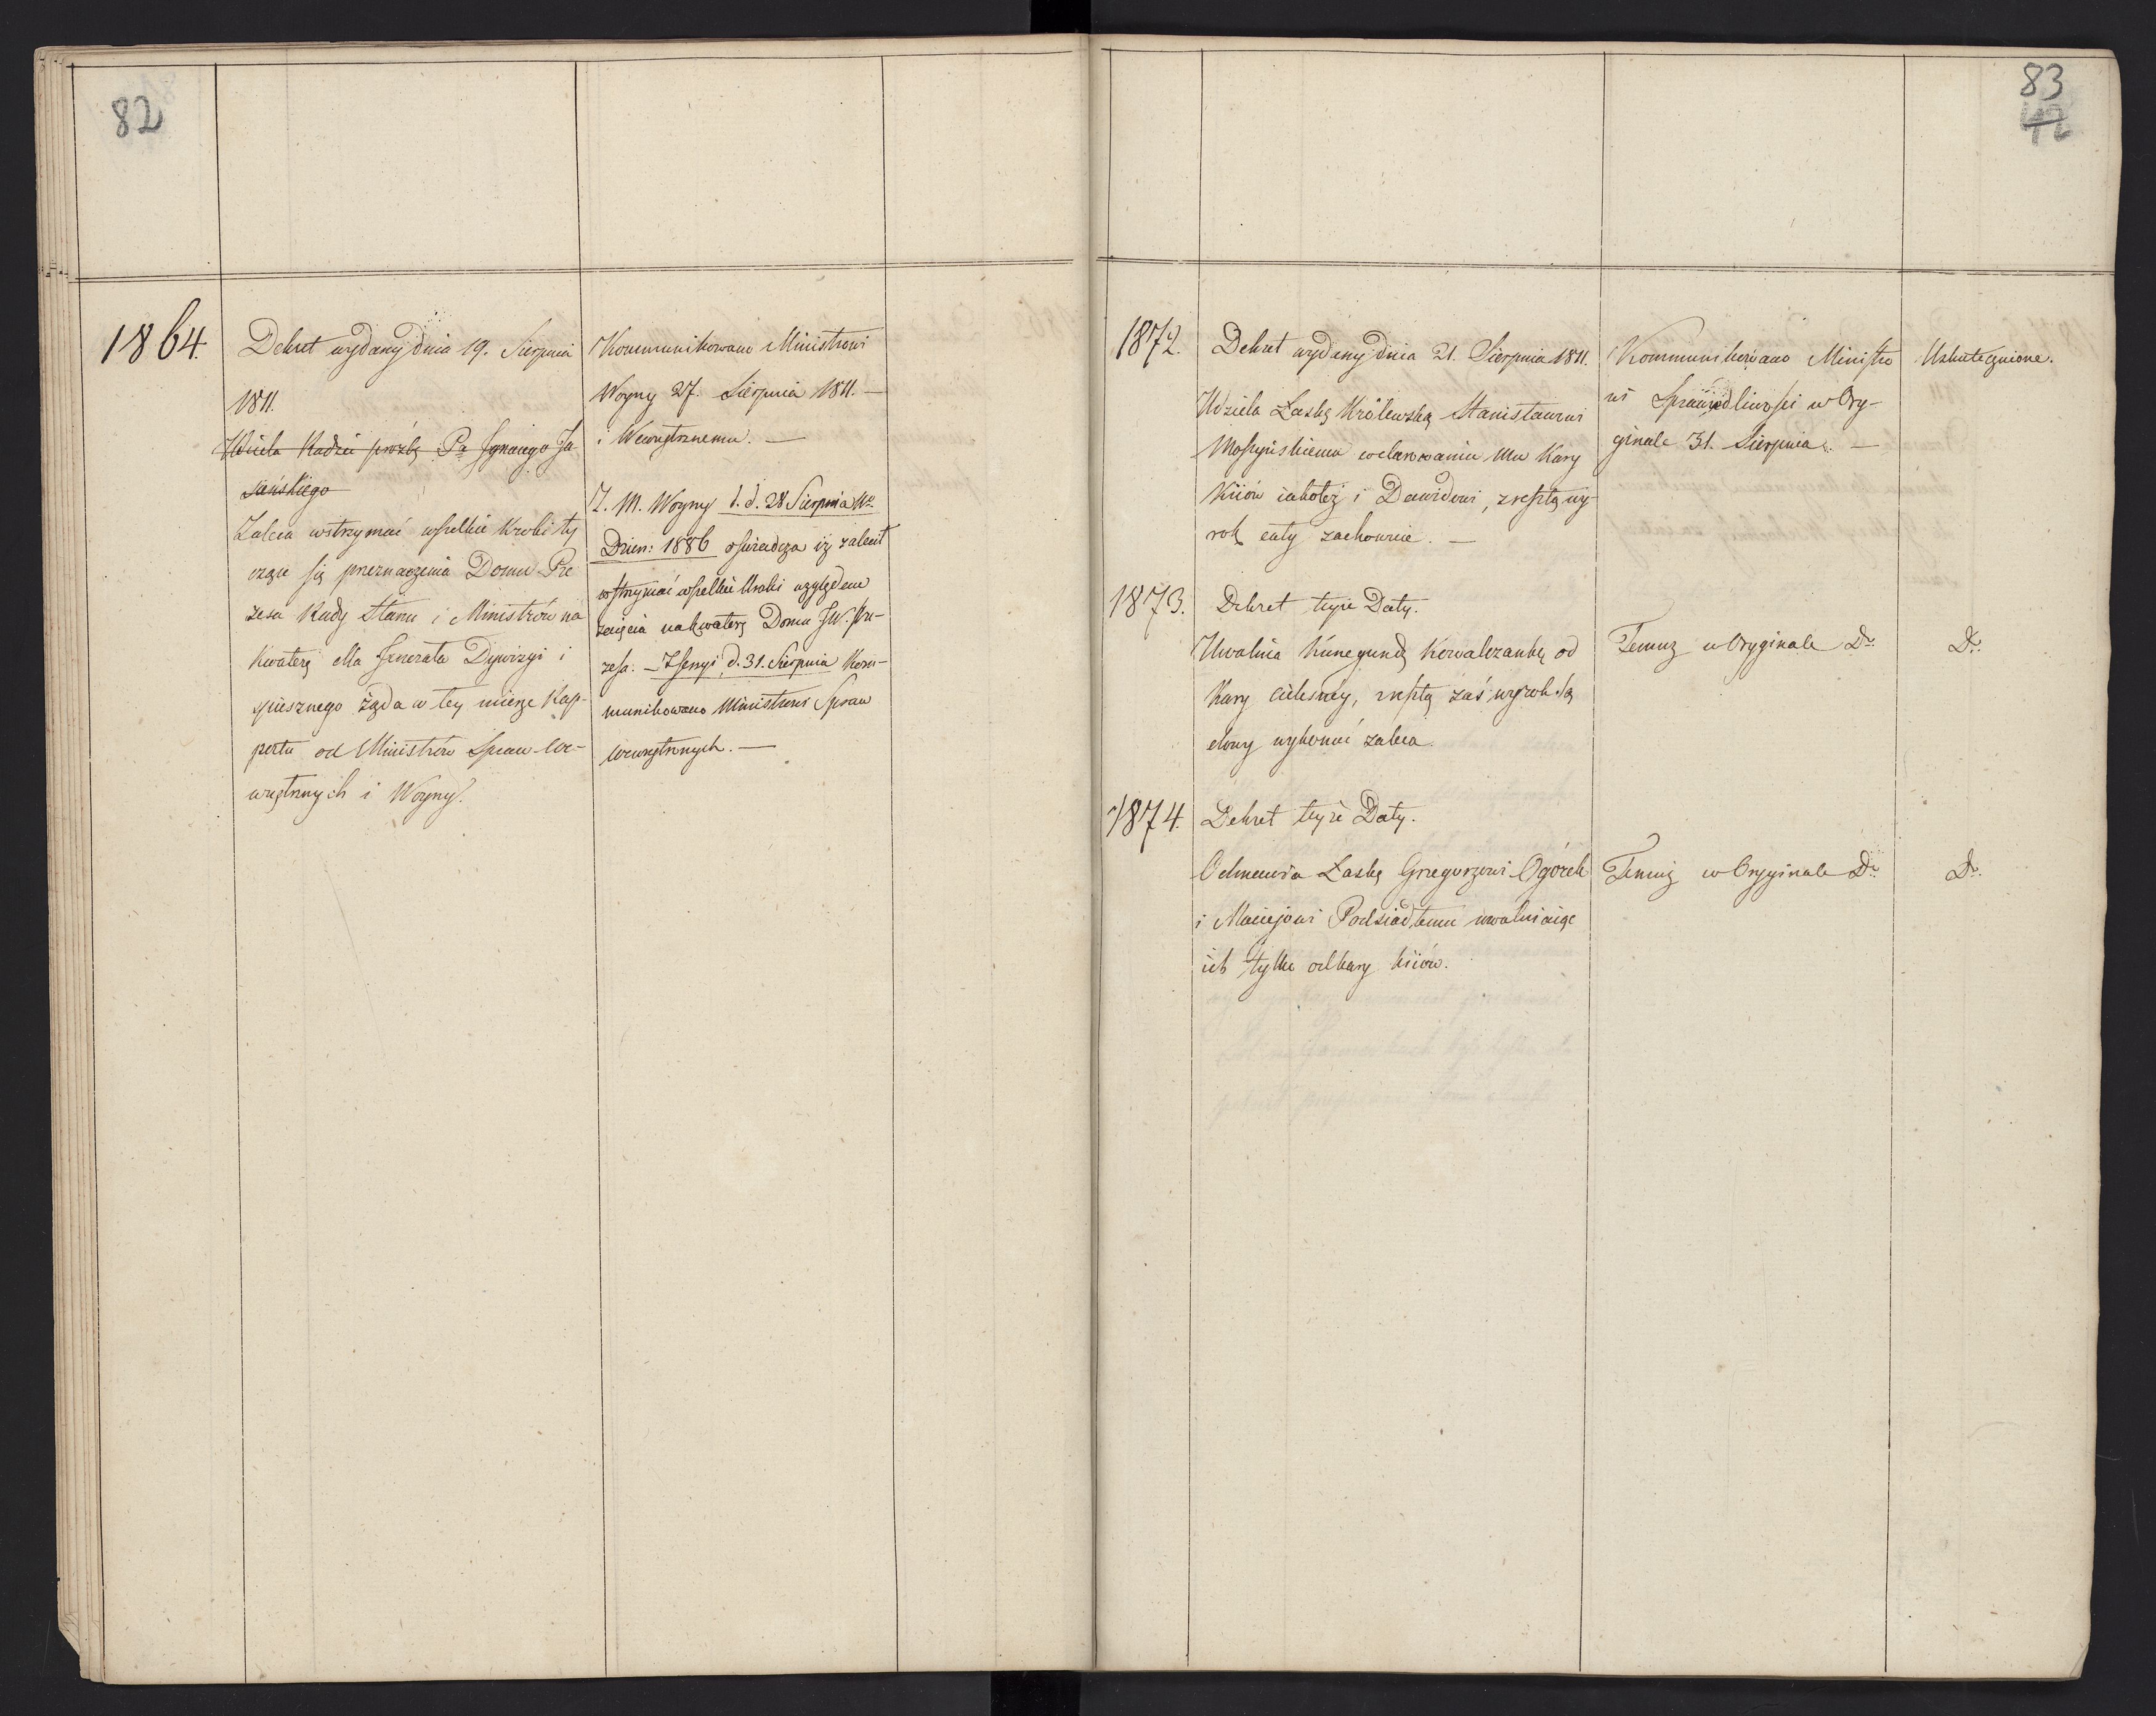 82
1864.
Dekret wydany dnia 19. Sierpnia
1811.
Udziela Radzie prożbę Pa Ignacego Ja-
Zaleca wstrzymać wszelkie Kroki ty
czące się przeznaczenia Domu Pre
zesa Rady Stanu i Ministrów na
kwaterę dla Jenerała Dywizyi i
spiesznego żąda w tey mierze Rap-
portu od Ministrów Spraw We-
wnętrznych i Woyny.
Kommunikowano Ministrowi
Woyny 27. Sierpnia 1811. —
i Wewnętrznemu. —
Z. M. Woyny t. d. 28 Sierpnia No
Dzien: 1886 oświadcza iż zalecił
wstrzymać wszelkie Kroki względem
zajęcia na kwaterę Domu JW. Pre-
zesa. — Z Sessyi d. 31. Sierpnia Kom-
munikowano Ministrowi Spraw
wewnętrznych. —
83
42
1872.
Dekret wydany dnia 21. Sierpnia 1811.
Udziela Łaskę Królewską Stanisławowi
Moszyńskiemu w darowaniu mu Kary
Kiiów iakoteż i Dawidowi, z resztą wy-
rok cały zachowuie. —
Kommunikowano Ministro
wi Sprawiedliwości w Ory-
ginale 31. Sierpnia. —
Uskutecznione.
1873.
Dekret teyże Daty.
Uwalnia Kunegundę Kowalczankę od
Kary cielesney, resztę zaś wyrok Są
dowy wykonać zaleca.
Temuż w Oryginale Do
Do
1874.
Dekret teyże Daty.
Odmawia Łaskę Grzegorzowi Ogórek
i Maciejowi Podsiadłemu uwalniaiąc
ich tylko od kary kiiów.
Temuż w Oryginale Do
Do